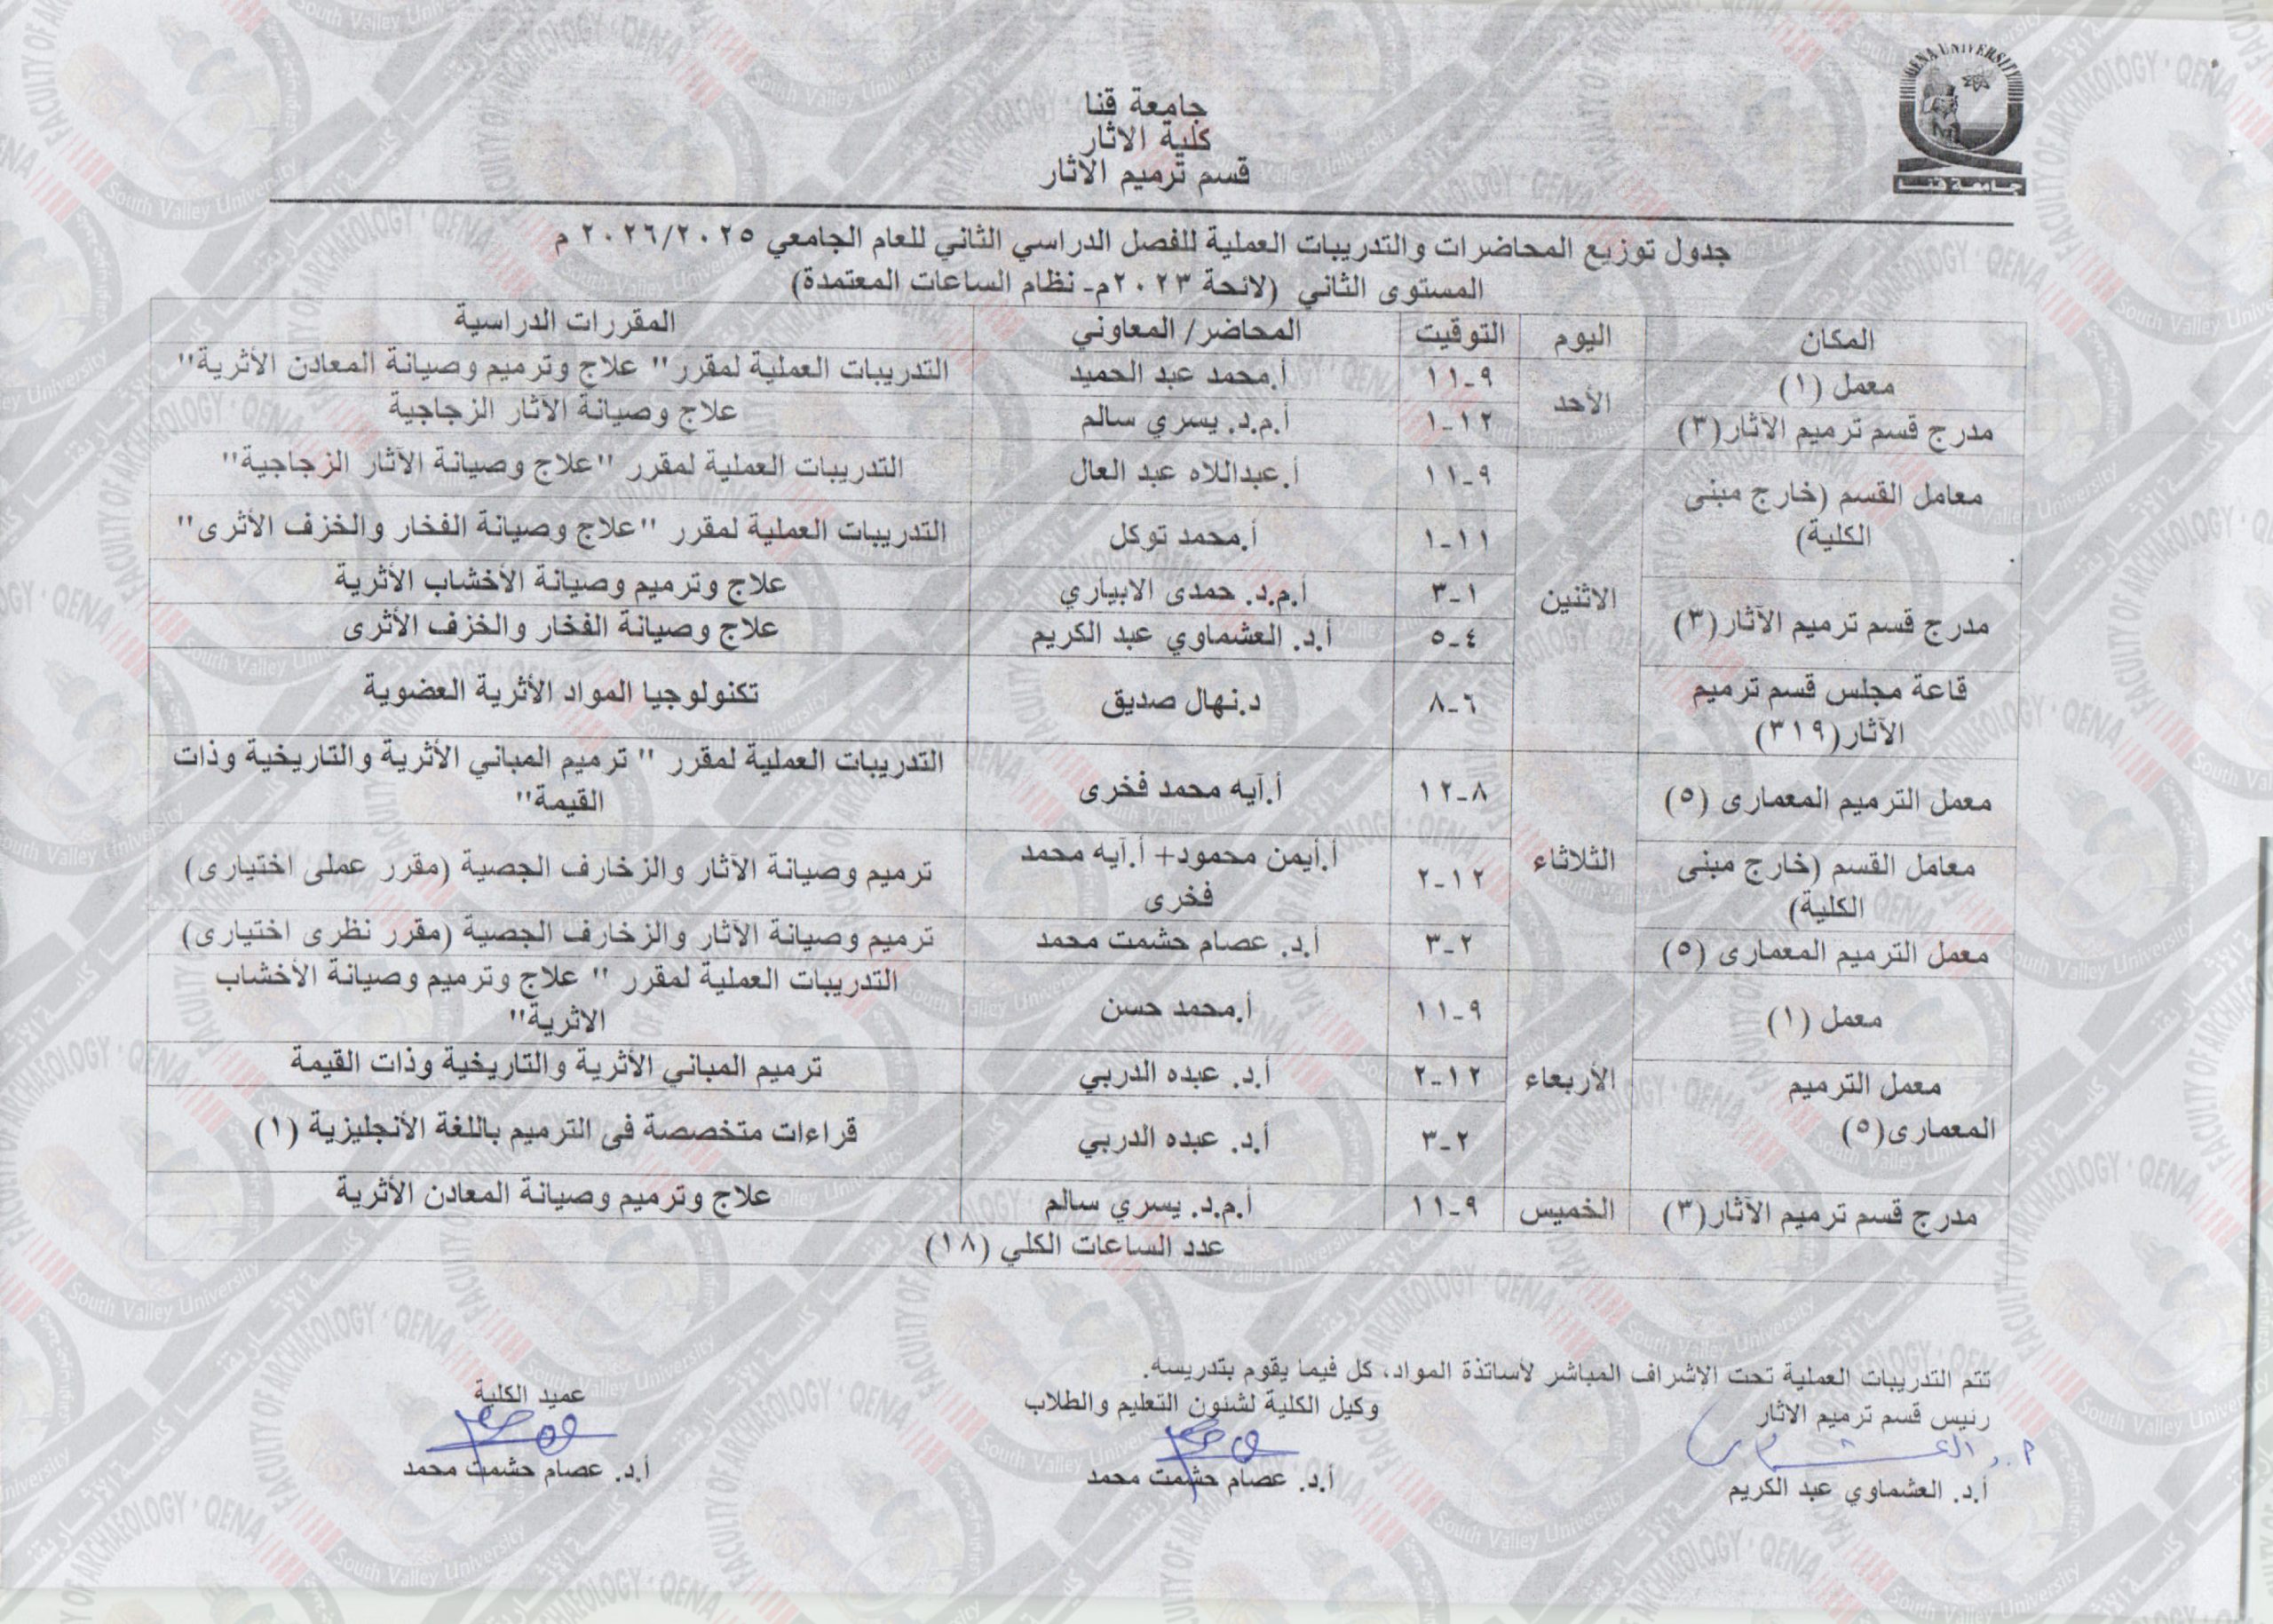 QENA UNIVERSITY
جامعة قنا
جامعة قنا
كلية الاثار
قسم ترميم الاثار
جدول توزيع المحاضرات والتدريبات العملية للفصل الدراسي الثاني للعام الجامعي ٢٠٢٦/٢٠٢٥ م
المستوى الثاني (لائحة ٢٠٢٣م- نظام الساعات المعتمدة)
المكان اليوم التوقيت المحاضر/ المعاوني المقررات الدراسية
معمل (١) الأحد ٩-١١ أ.محمد عبد الحميد التدريبات العملية لمقرر" علاج وترميم وصيانة المعادن الأثرية"
مدرج قسم ترميم الآثار(٣) ١٢-١ أ.م.د. يسري سالم علاج وصيانة الآثار الزجاجية
معامل القسم (خارج مبنى الكلية) الاثنين ٩-١١ أ.عبداللاه عبد العال التدريبات العملية لمقرر "علاج وصيانة الآثار الزجاجية"
١١-١ أ.محمد توكل التدريبات العملية لمقرر "علاج وصيانة الفخار والخزف الأثرى"
مدرج قسم ترميم الآثار(٣) ١-٣ أ.م.د. حمدى الابياري علاج وترميم وصيانة الأخشاب الأثرية
٤-٥ أ.د. العشماوي عبد الكريم علاج وصيانة الفخار والخزف الأثرى
قاعة مجلس قسم ترميم الآثار(٣١٩) ٦-٨ د.نهال صديق تكنولوجيا المواد الأثرية العضوية
معمل الترميم المعمارى (٥) الثلاثاء ٨-١٢ أ.آيه محمد فخرى التدريبات العملية لمقرر " ترميم المباني الأثرية والتاريخية وذات القيمة"
معامل القسم (خارج مبنى الكلية) ١٢-٢ أ.أيمن محمود+ أ.آيه محمد فخرى ترميم وصيانة الآثار والزخارف الجصية (مقرر عملى اختيارى)
معمل الترميم المعمارى (٥) ٢-٣ أ.د. عصام حشمت محمد ترميم وصيانة الآثار والزخارف الجصية (مقرر نظرى اختيارى)
معمل (١) الأربعاء ٩-١١ أ.محمد حسن التدريبات العملية لمقرر " علاج وترميم وصيانة الأخشاب الاثرية"
معمل الترميم المعمارى(٥) ١٢-٢ أ.د. عبده الدربي ترميم المباني الأثرية والتاريخية وذات القيمة
٢-٣ أ.د. عبده الدربي قراءات متخصصة فى الترميم باللغة الأنجليزية (١)
مدرج قسم ترميم الآثار(٣) الخميس ٩-١١ أ.م.د. يسري سالم علاج وترميم وصيانة المعادن الأثرية
عدد الساعات الكلي (١٨)
تتم التدريبات العملية تحت الإشراف المباشر لأساتذة المواد، كل فيما يقوم بتدريسه.
رئيس قسم ترميم الاثار
أ.د. العشماوي عبد الكريم
وكيل الكلية لشئون التعليم والطلاب
أ.د. عصام حشمت محمد
عميد الكلية
أ.د. عصام حشمت محمد
FACULTY OF ARCHAEOLOGY · QENA
South Valley University